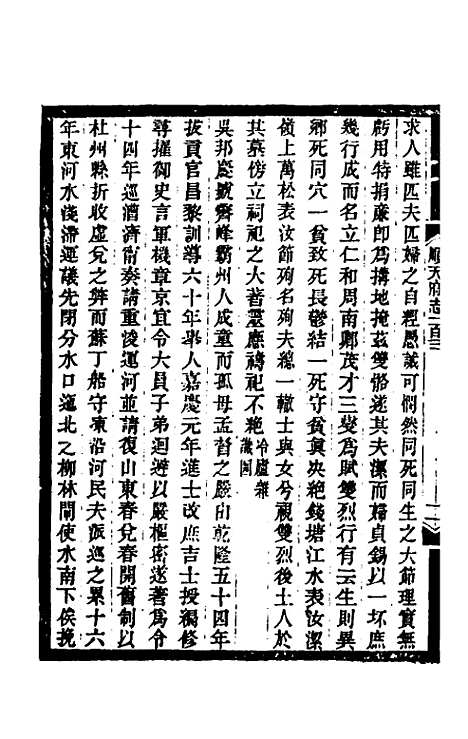 順天府志一百三
求人雖匹夫匹婦之自經愚誠可憫然同死同生之大節理實無
虧用特捐廉卽爲搆地掩茲雙骼遂其夫潔而婦貞錫以一坏庶
幾行成而名立仁和周南卿茂才三燮爲賦雙烈行有云生則異
鄉死同穴一貧致死長鬱結一死守貧眞決絶錢塘江水表汝潔
嶺上萬松表汝節殉名殉夫總一轍士與女兮視雙烈後士人於
其墓傍立祠祀之大著靈應禱祀不絶冷廬雜識四
吳邦慶號霽峰霸州人成童而孤母孟督之嚴由乾隆五十四年
拔貢官昌黎訓導六十年舉人嘉慶元年進士改庶吉士授編修
尋擢御史言軍機章京宜令大員子弟迴避以嚴樞密遂著爲令
十四年巡漕濟甯奏請重浚運河並請復山東春兌春開舊制以
杜州縣折收虛兌之弊而蘇丁船守凍沿河民夫派巡之累十六
年東河水淺滯運議先閉分水口迤北之柳林閘使水南下俟挽